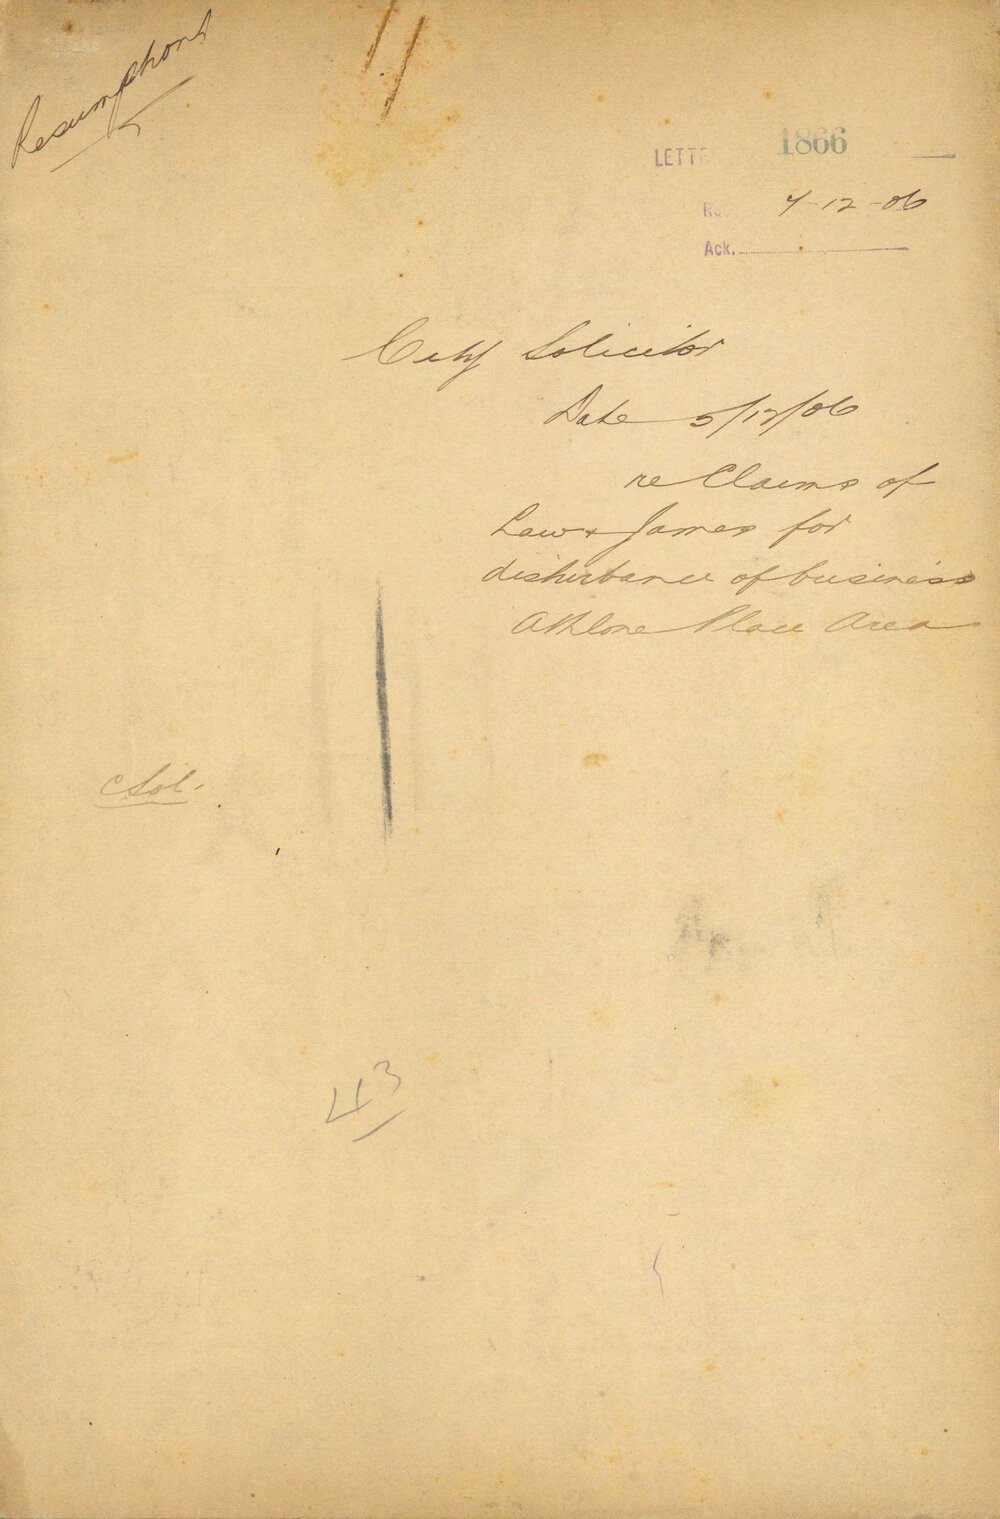 Resumptions
LETTE 1866
Re 7-12-06
Ack.
City Solicitor
Date 5/12/06
re Claims of
Law & James for
disturbance of business
Athlone Place Area
C Sol.
43